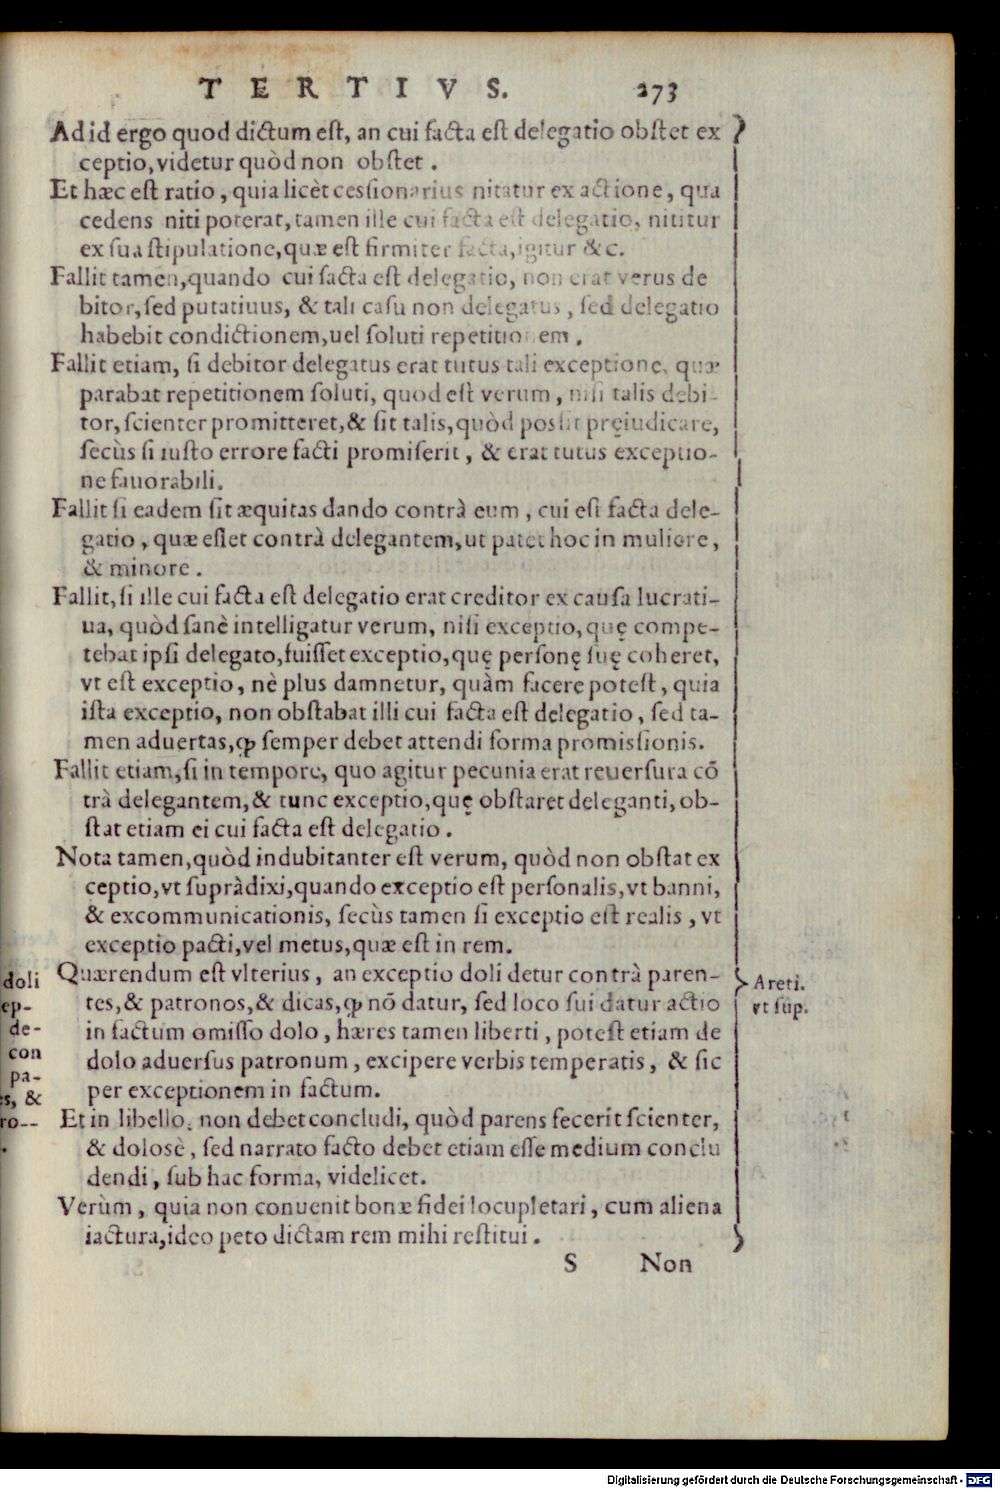 TERTIVS. 273
Ad id ergo quod dictum est, an cui facta est delegatio obstet ex
ceptio, videtur quòd non obstet.
Et hæc est ratio, quia licèt cessionarius nitatur ex actione, qua
cedens niti poterat, tamen ille cui facta est delegatio, nititur
ex sua stipulatione, quæ est firmiter facta, igitur &c.
Fallit tamen, quando cui facta est delegatio, non erat verus de
bitor, sed putatiuus, & tali casu non delegatus, sed delegatio
habebit condictionem, uel soluti repetitionem.
Fallit etiam, si debitor delegatus erat tutus tali exceptione, quæ
parabat repetitionem soluti, quod est verum, nisi talis debi-
tor, scienter promitteret, & sit talis, quòd possit pręiudicare,
secùs si iusto errore facti promiserit, & erat tutus exceptio-
ne fauorabili.
Fallit si eadem sit æquitas dando contrà eum, cui est facta dele-
gatio, quæ esset contrà delegantem, ut patet hoc in muliere,
& minore.
Fallit, si ille cui facta est delegatio erat creditor ex causa lucrati-
ua, quòd sanè intelligatur verum, nisi exceptio, quę compe-
tebat ipsi delegato, fuisset exceptio, quę personę suę coheret,
vt est exceptio, nè plus damnetur, quàm facere potest, quia
ista exceptio, non obstabat illi cui facta est delegatio, sed ta-
men aduertas, ꝙ semper debet attendi forma promissionis.
Fallit etiam, si in tempore, quo agitur pecunia erat reuersura cō
trà delegantem, & tunc exceptio, quę obstaret deleganti, ob-
stat etiam ei cui facta est delegatio.
Nota tamen, quòd indubitanter est verum, quòd non obstat ex
ceptio, vt suprà dixi, quando exceptio est personalis, vt banni,
& excommunicationis, secùs tamen si exceptio est realis, vt
exceptio pacti, vel metus, quæ est in rem.
Quærendum est vlterius, an exceptio doli detur contrà paren-
tes, & patronos, & dicas, ꝙ nō datur, sed loco sui datur actio
in factum omisso dolo, hæres tamen liberti, potest etiam de
dolo aduersus patronum, excipere verbis temperatis, & sic
per exceptionem in factum.
Et in libello, non debet concludi, quòd parens fecerit scienter,
& dolosè, sed narrato facto debet etiam esse medium conclu
dendi, sub hac forma, videlicet.
Verùm, quia non conuenit bonæ fidei locupletari, cum aliena
iactura, ideo peto dictam rem mihi restitui.
S Non
Areti.
vt sup.
doli
ep-
de-
con
pa-
s, &
ro--
Digitalisierung gefördert durch die Deutsche Forschungsgemeinschaft - DFG